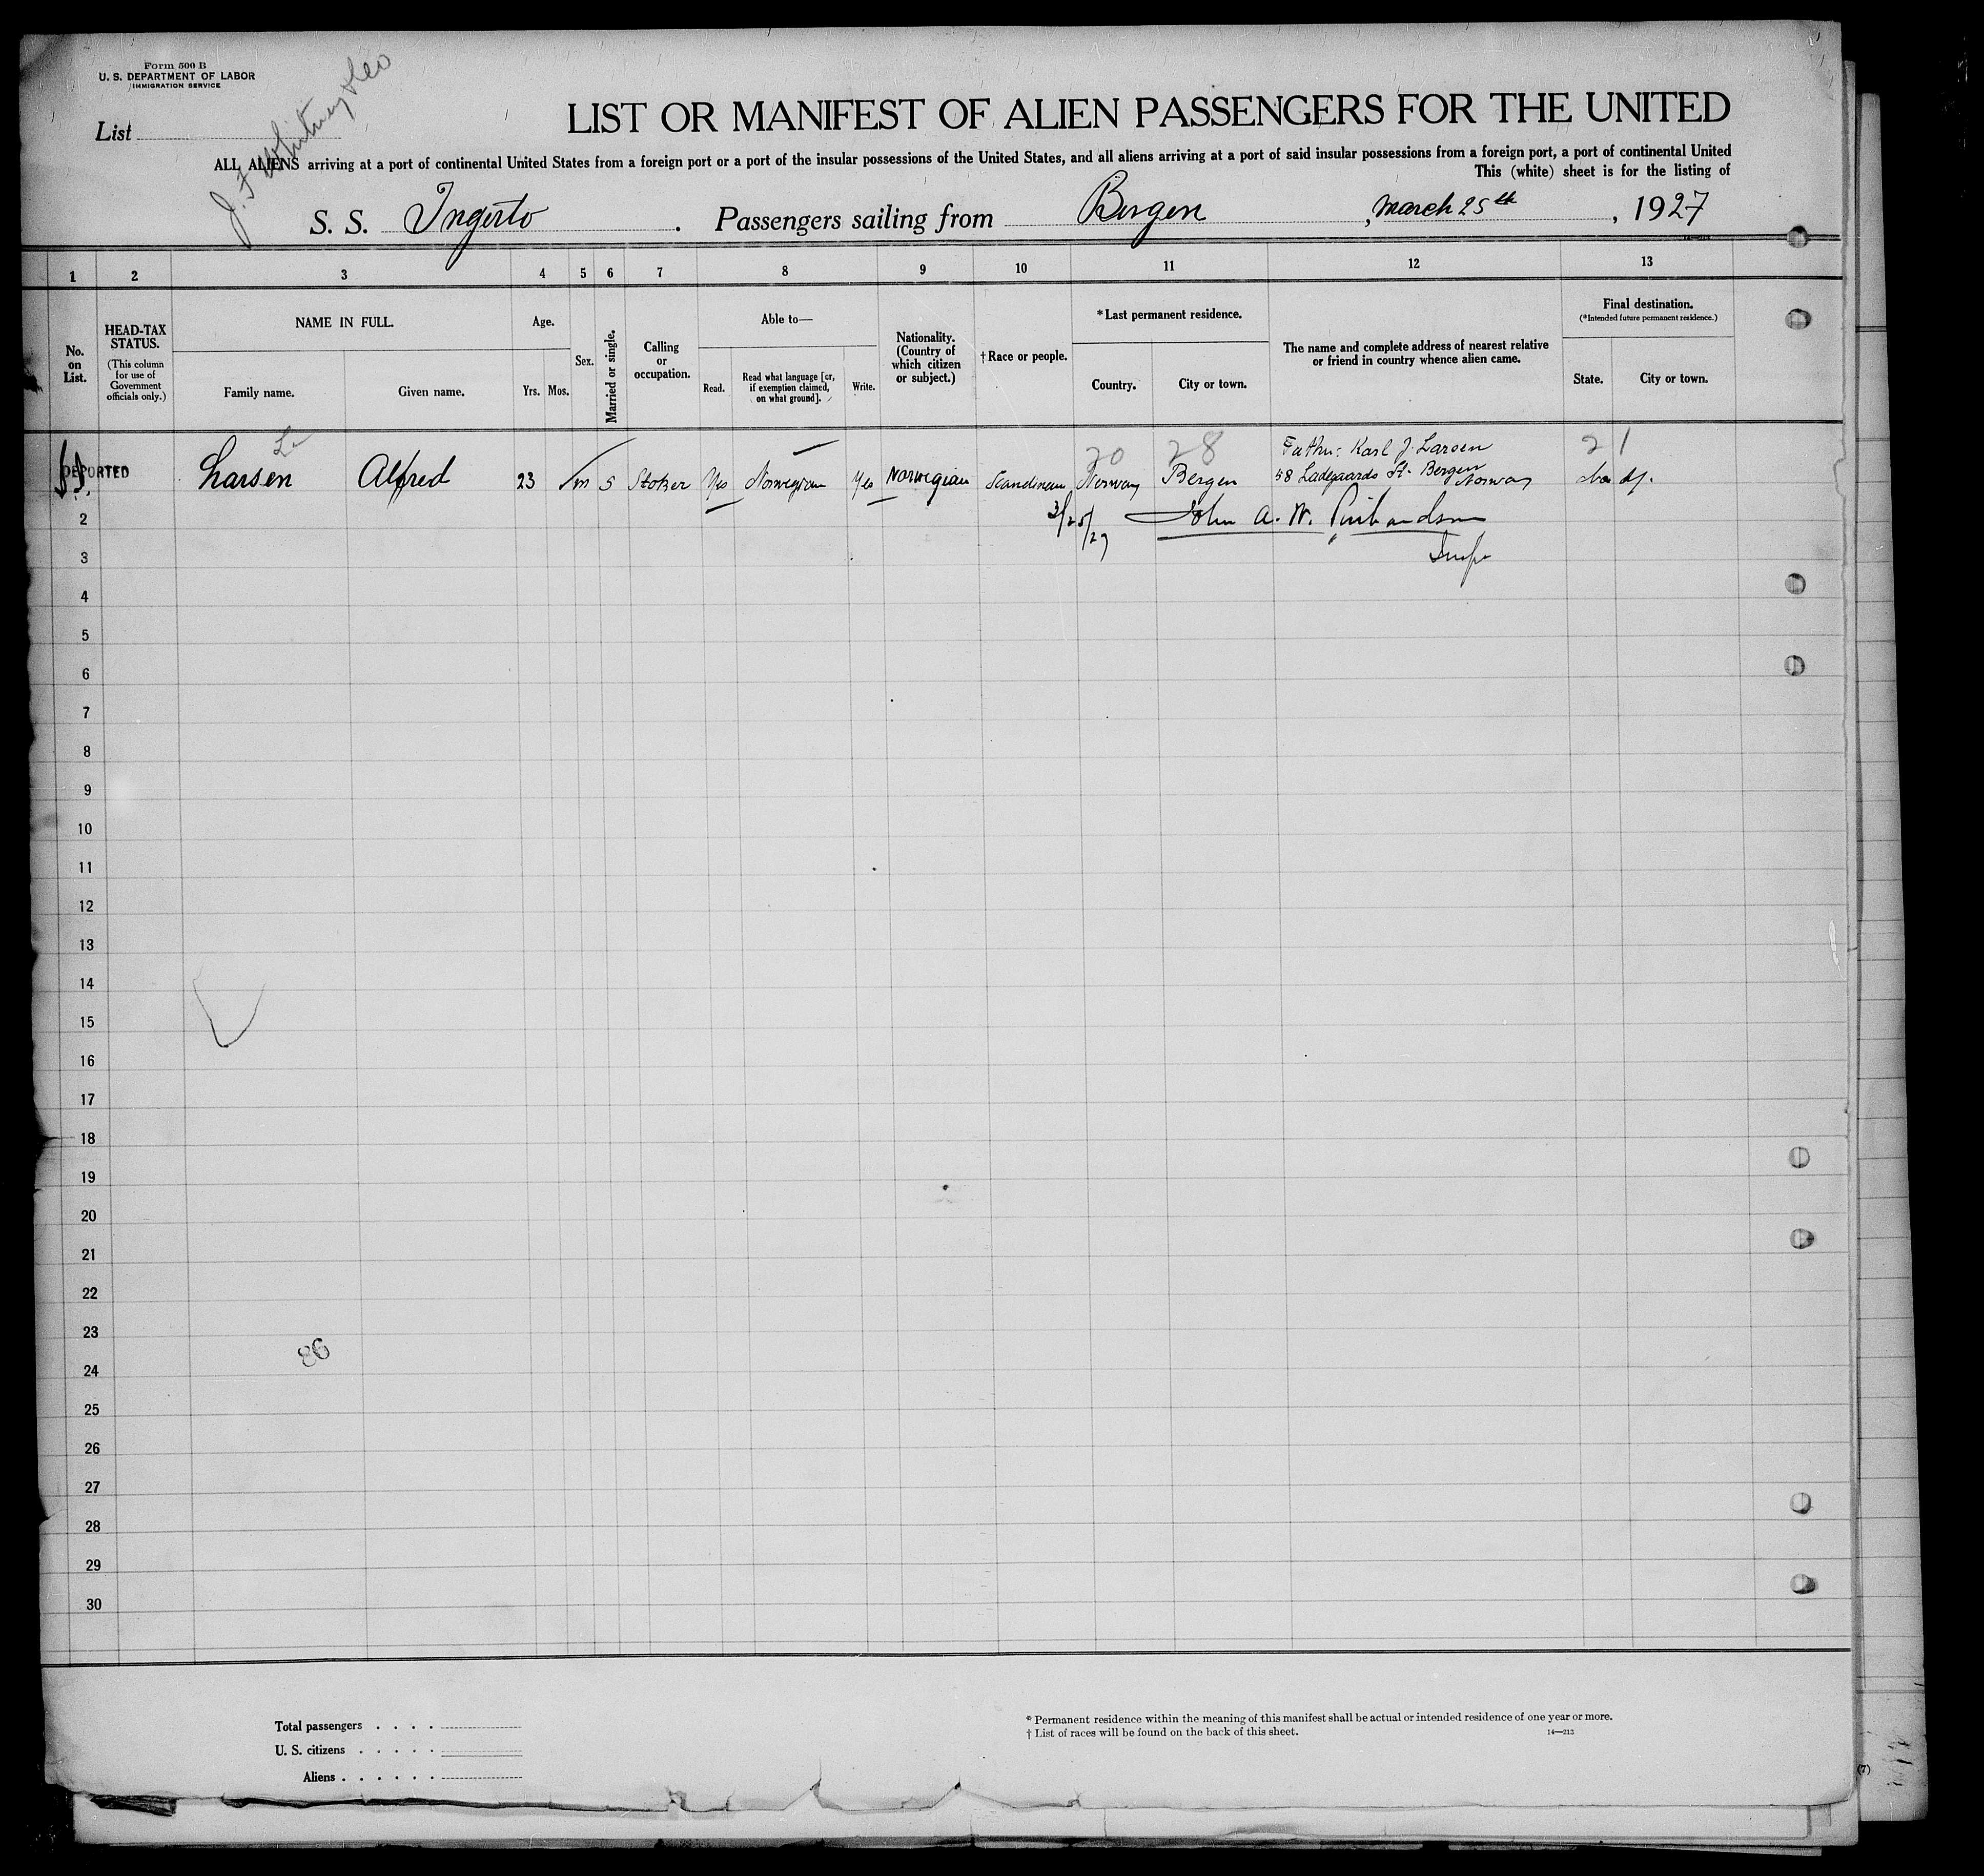 Form 500 B
U. S. DEPARTMENT OF LABOR
IMMIGRATION SERVICE
J. F. Whitney & Co
List
LIST OR MANIFEST OF ALIEN PASSENGERS FOR THE UNITED
ALL ALIENS arriving at a port of continental United States from a foreign port or a port of the insular possessions of the United States, and all aliens arriving at a port of said insular possessions from a foreign port, a port of continental United
This (white) sheet is for the listing of
S. S. Ingerto . Passengers sailing from Bergen , March 25th , 1927
1 2 3 4 5 6 7 8 9 10 11 12 13
No. on List.
HEAD-TAX STATUS.
(This column for use of Government officials only.)
NAME IN FULL.
Family name.
Given name.
Age.
Yrs. Mos.
Sex.
Married or single.
Calling or occupation.
Able to—
Read.
Read what language [or, if exemption claimed, on what ground].
Write.
Nationality. (Country of which citizen or subject.)
† Race or people.
* Last permanent residence.
Country.
City or town.
The name and complete address of nearest relative or friend in country whence alien came.
Final destination.
(* Intended future permanent residence.)
State.
City or town.
20 28 Father: Karl J. Larsen 21
DEPORTED Larsen Alfred 23 m S Stoker Yes Norwegian Yes Norwegian Norway Bergen 58 Ladegaards St. Bergen
Norway
2 3/25/27 John A. W.
3 Insp
4
5
6
7
8
9
10
11
12
13
14
15
16
17
18
19
20
21
22
23
86
24
25
26
27
28
29
30
Total passengers . . . .
U. S. citizens . . . . .
Aliens . . . . . .
* Permanent residence within the meaning of this manifest shall be actual or intended residence of one year or more.
† List of races will be found on the back of this sheet. 14—213